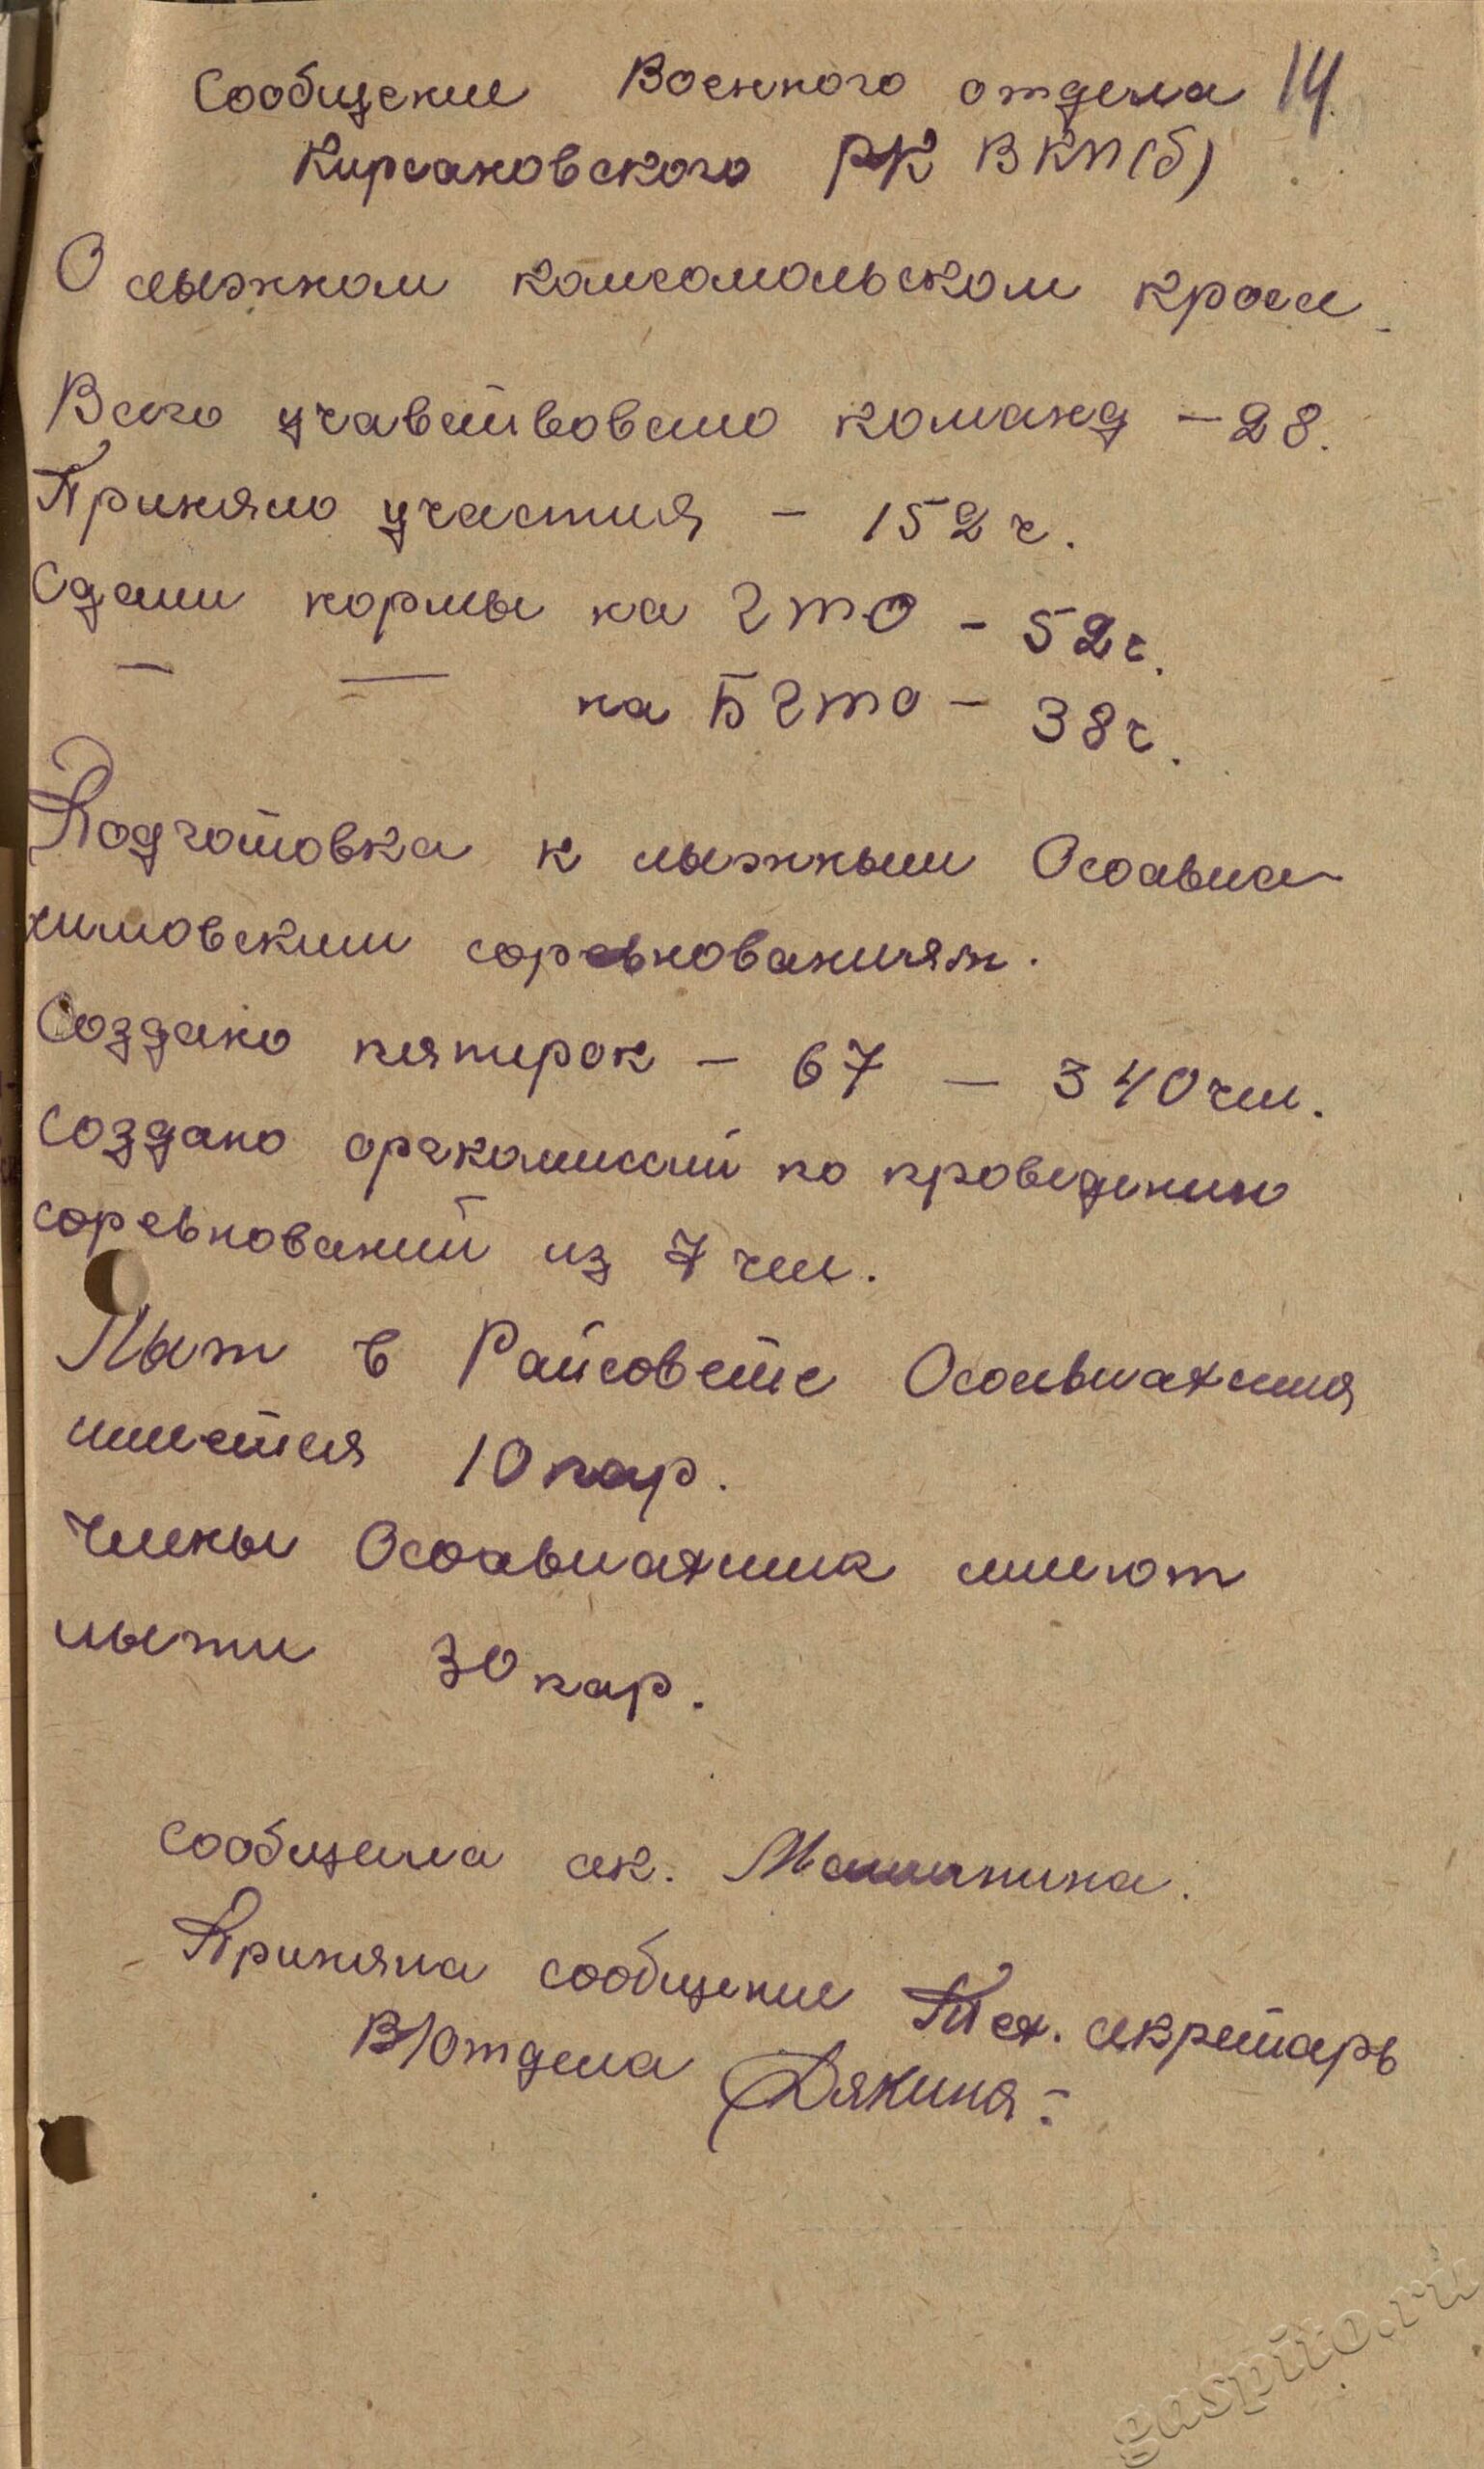 Сообщение Военного отдела 14
Кирсановского РК ВКП(б)
О лыжном комсомольском кроссе
Всего учавствовало команд - 28.
Приняло участия - 152 ч.
Сдали нормы на ГТО - 52 ч.
— — на БГТО - 38 ч.
Подготовка к лыжным Осоавиа-
химовским соревнованиям.
Создано пятерок - 67 - 340 чел.
Создано оргкомиссий по проведению
соревнований из 7 чел.
Лыж в Райсовете Осоавиахима
имеется 10 пар.
Члены Осоавиахима имеют
лыжи 30 пар.
Сообщила сек.
Приняла сообщение Тех. секретарь
В/Отдела Дякина
gaspito.ru